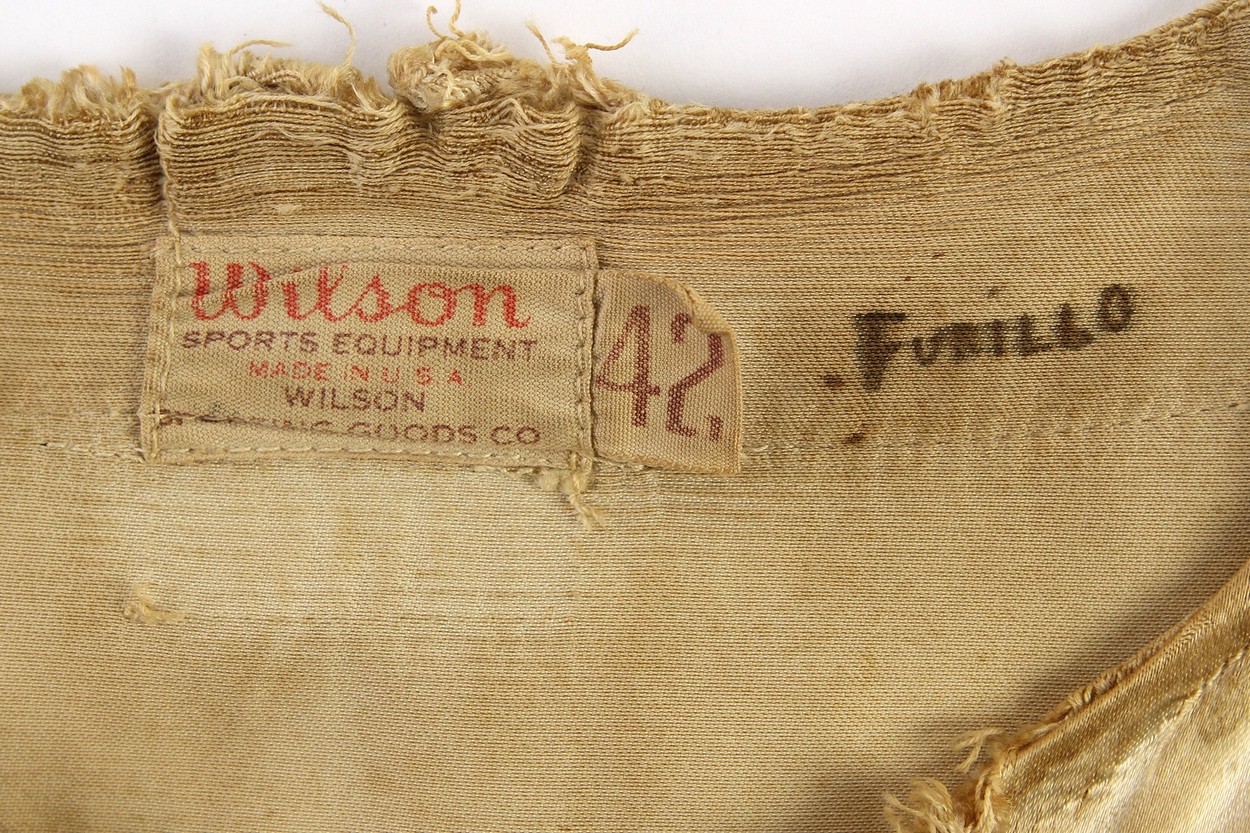 Wilson
SPORTS EQUIPMENT
MADE IN U S A
WILSON
GOODS CO
42
FURILLO